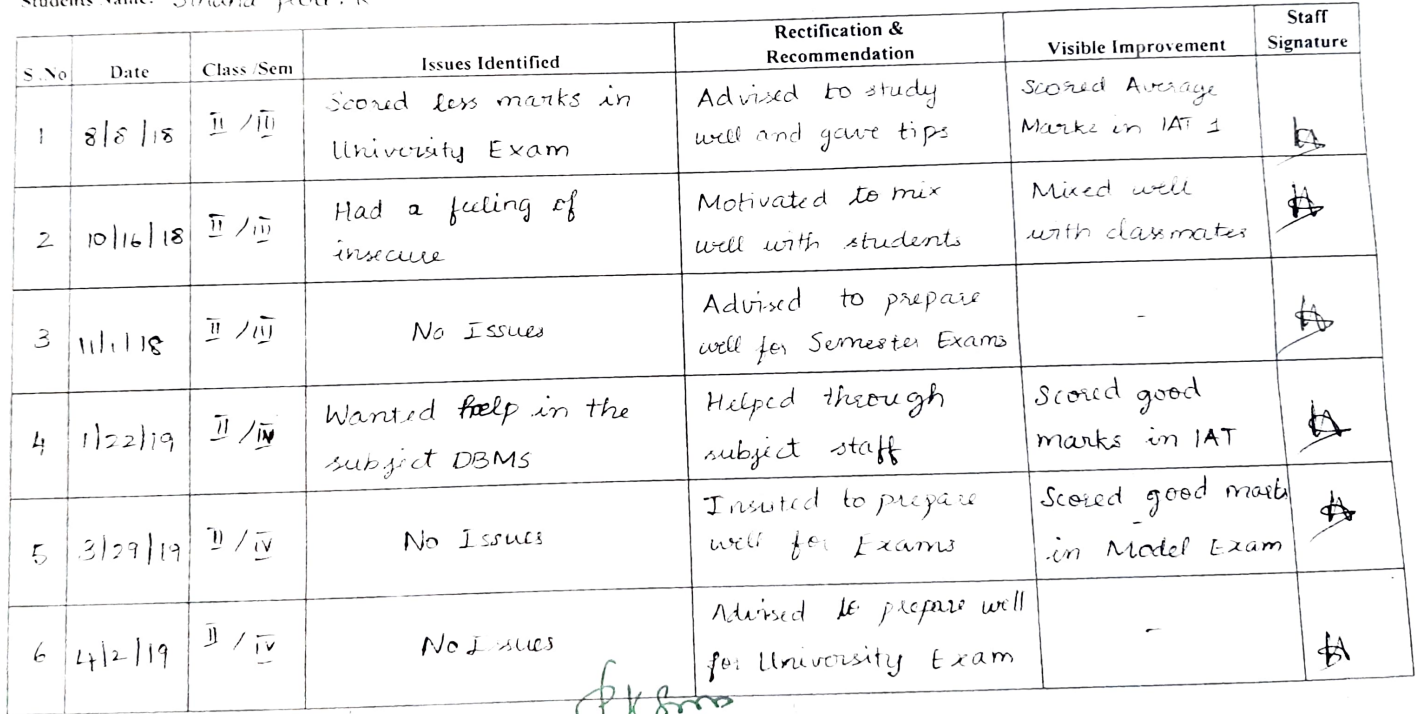 Students Name:
S.No Date Class /Sem Issues Identified Rectification & Recommendation Visible Improvement Staff Signature
1 8/8/18 II / III Scored less marks in University Exam Advised to study well and gave tips Scored Average Marks in IAT 1
2 10/16/18 II / III Had a feeling of insecure Motivated to mix well with students Mixed well with classmates
3 11/1/18 II / III No Issues Advised to prepare well for Semester Exams -
4 1/22/19 II / IV Wanted help in the subject DBMS Helped through subject staff Scored good marks in IAT
5 3/29/19 II / IV No Issues to prepare well for Exams Scored good marks in Model Exam
6 4/2/19 II / IV No Issues Advised to prepare well for University Exam -